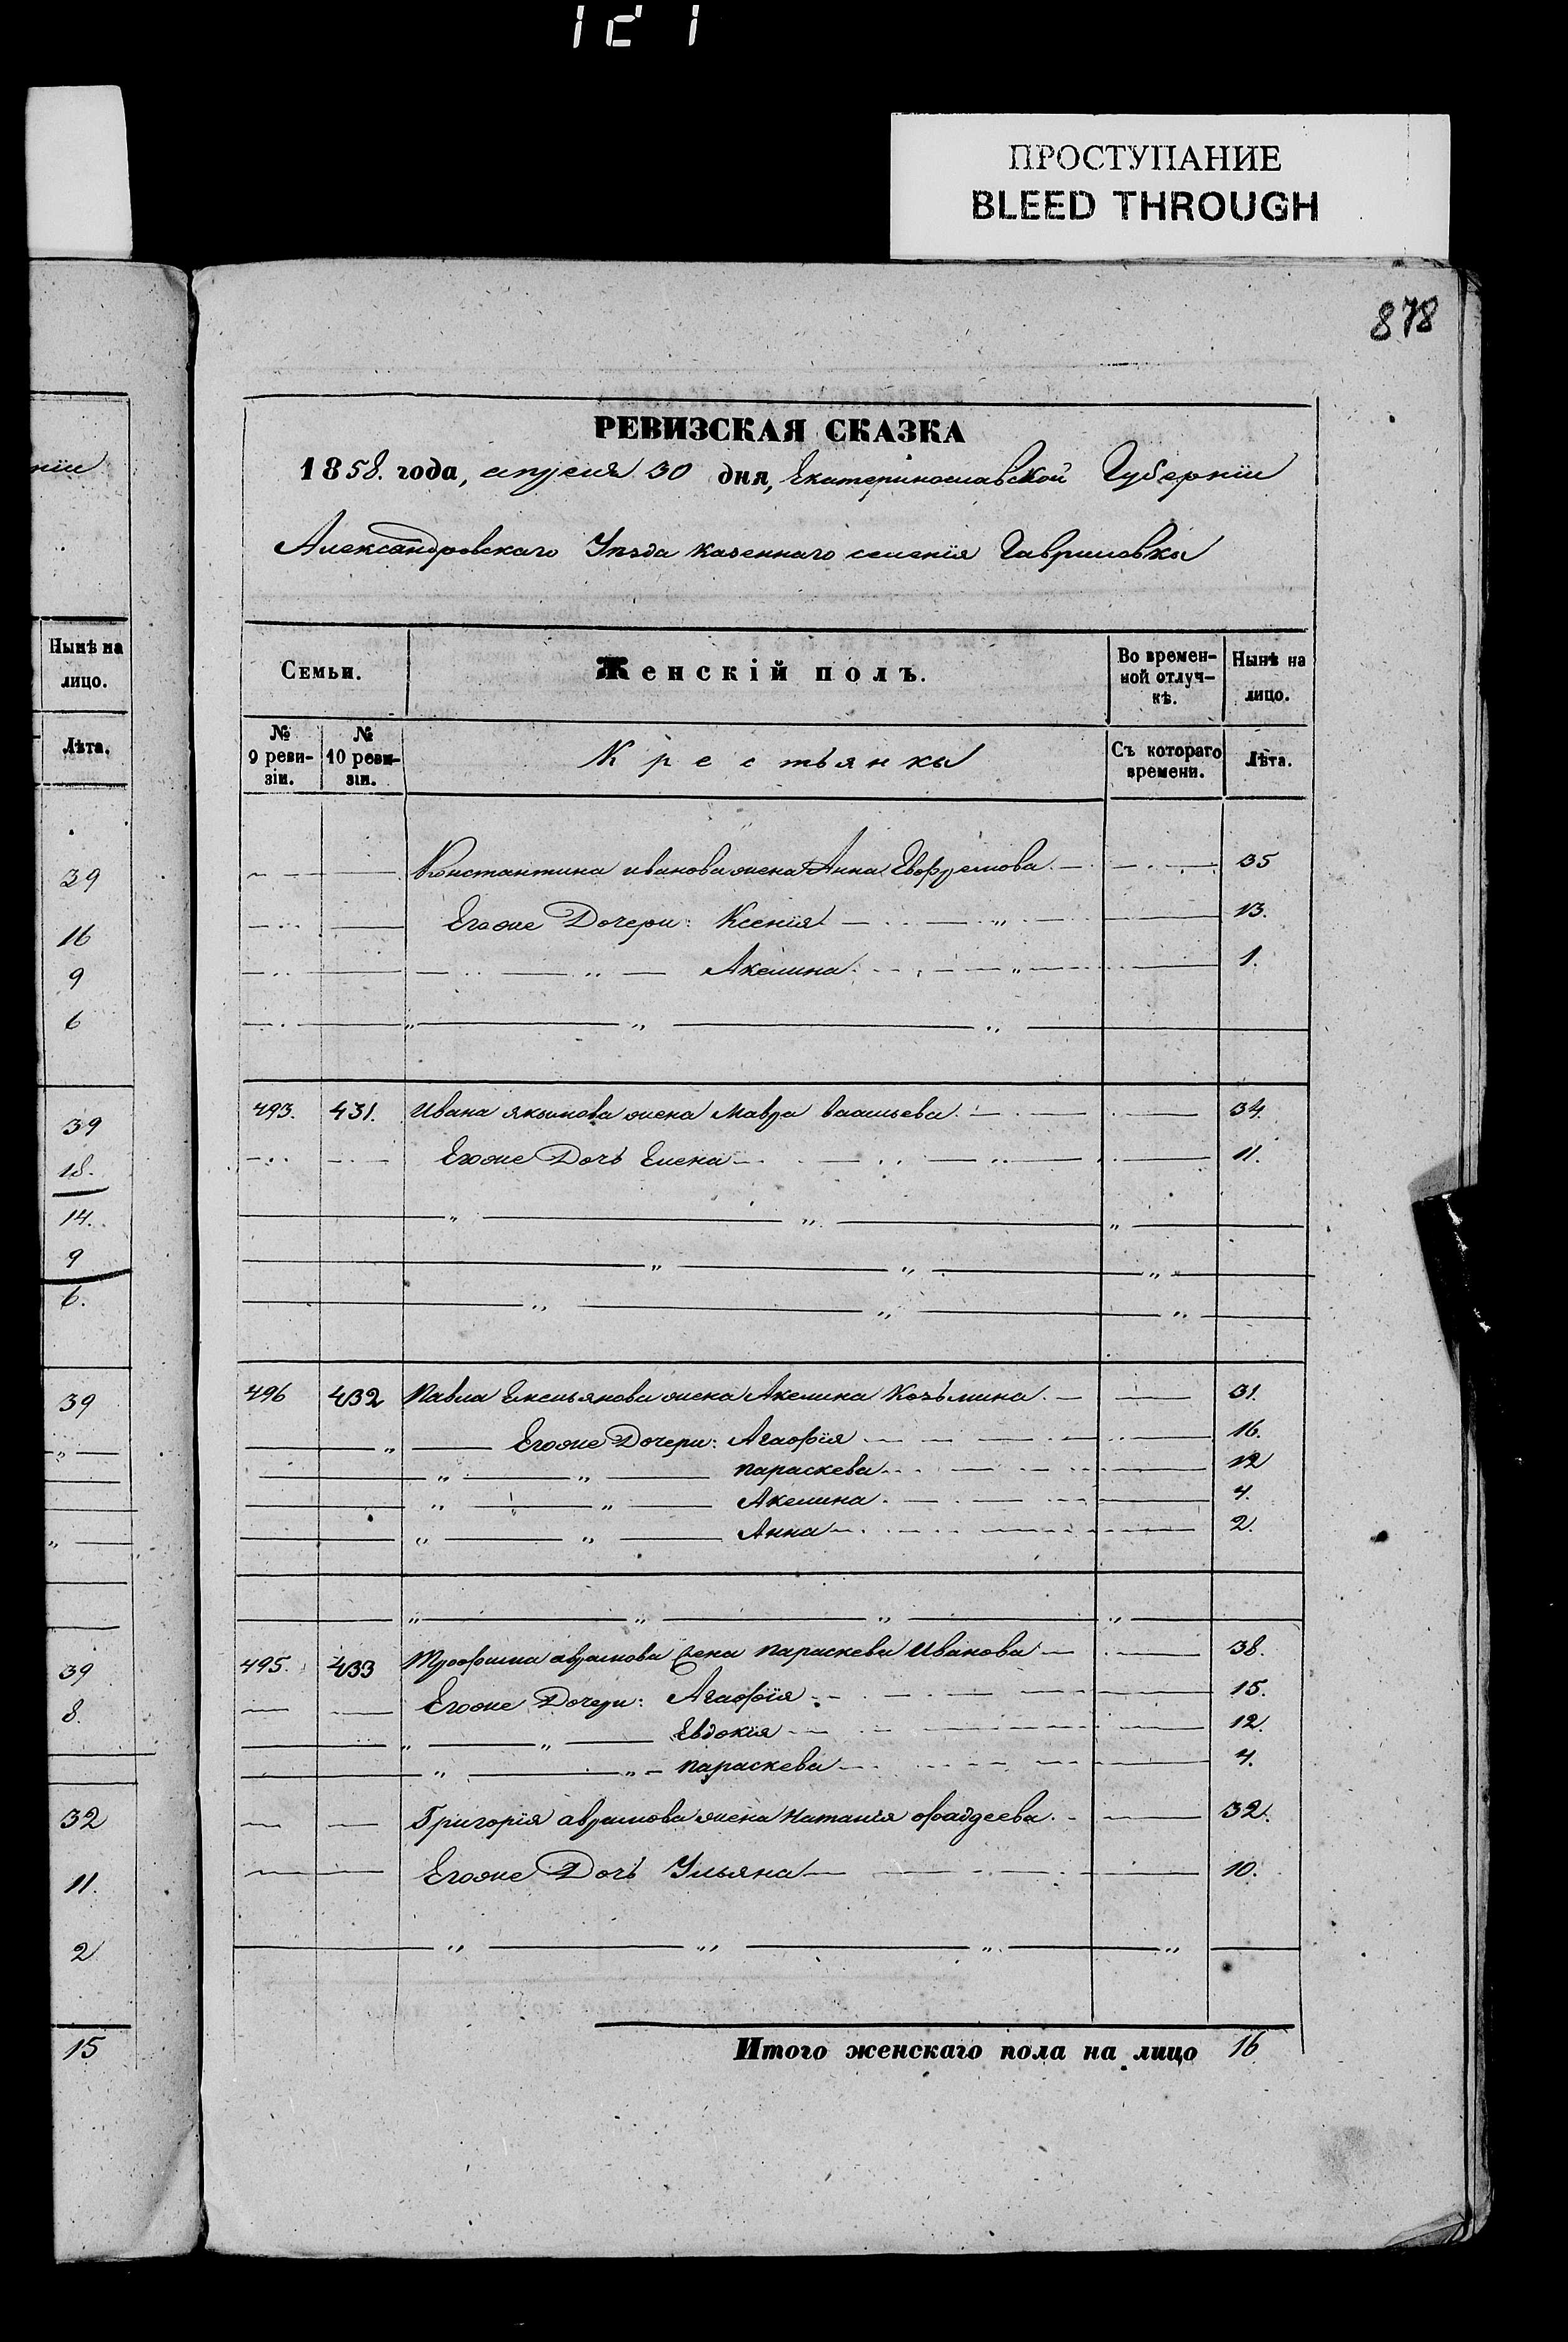 ПРОСТУПАНИЕ
BLEED THROUGH
878
РЕВИЗСКАЯ СКАЗКА
1858. года, апреля 30 дня, Екатеринославской Губернiи
Александровскаго Уезда казеннаго селенiя Гавриловки
Семьи. Женскiй полъ. Во времен-ной отлуч-кѣ. Нынѣ на лицо.
№ 9 реви-зiи. № 10 реви-зiи. Крестьянки Съ котораго времени. Лѣта.
Константина иванова жена Анна Евфремова 35
Егоже Дочери: Ксенiя 13.
Акелина 1.
493. 431. Ивана якимова жена Мавра васильева 34.
Егоже Дочь Елена 11.
496 432 Павла Емельянова жена Акелина Козьмина 31.
Егоже Дочери: Агафiя 16.
параскева 12
Акелина 4.
Анна 2.
495. 433 Трофима аврамова жена параскева Иванова 38.
Егоже Дочери: Агафiя 15.
Евдокiя 12.
параскева 4.
Григорiя аврамова жена Наталiя фаддеева 32.
Егоже Дочь Ульяна 10.
Итого женскаго пола на лицо 16
нiи
Нынѣ на
лицо.
Лѣта.
39
16
9
6
39
18.
14.
9
6.
39
39
8.
32
11.
2
15